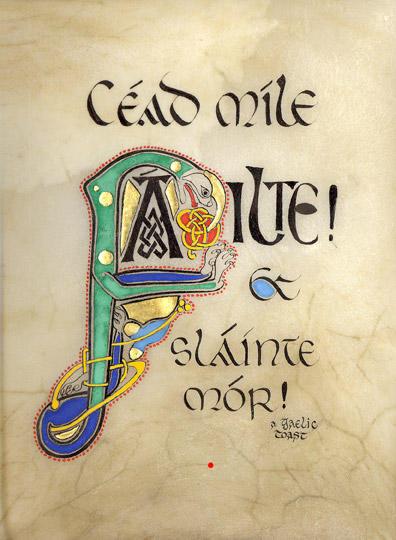 Céad míle
FÁILTE!
&
sláinte
mór!
a Gaelic
toast